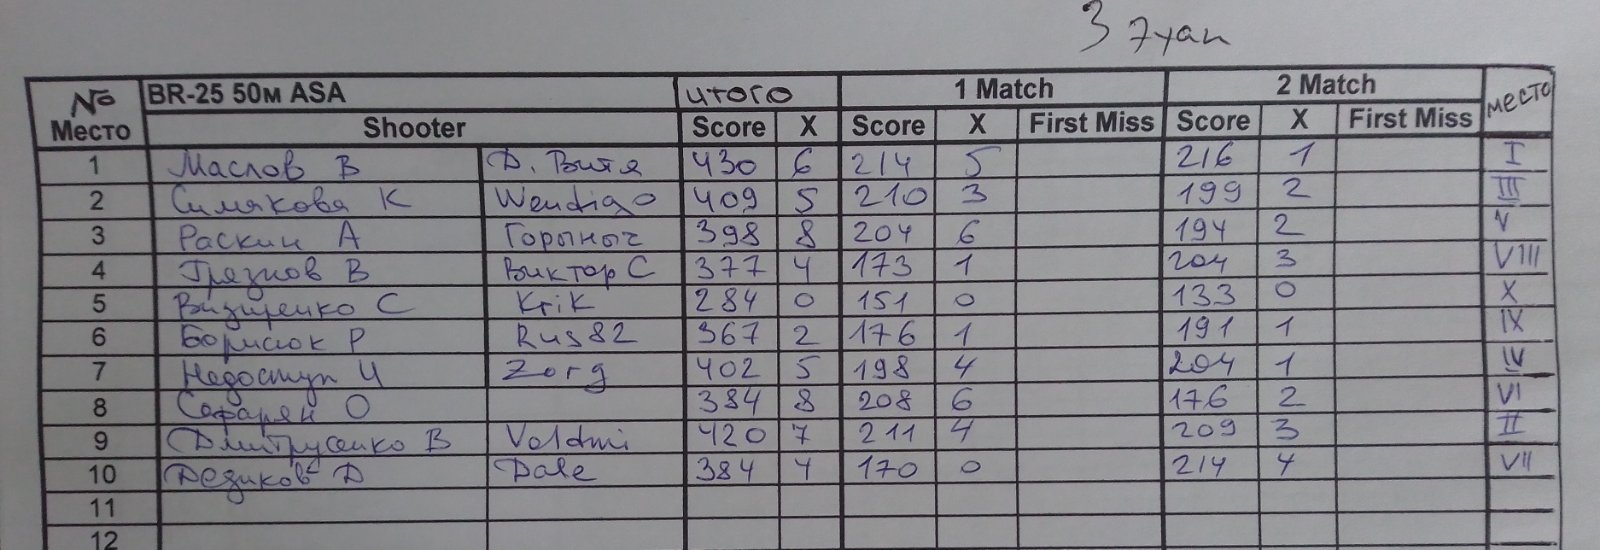 3 этап
№ BR-25 50м ASA итого 1 Match 2 Match место
Место Shooter Score X Score X First Miss Score X First Miss
1 Маслов В Д. Витя 430 6 214 5 216 1 I
2 Симакова К Wendigo 409 5 210 3 199 2 III
3 Раскин А Горыныч 398 8 204 6 194 2 V
4 Грязнов В Виктор С 377 4 173 1 204 3 VIII
5 Визиренко С Krik 284 0 151 0 133 0 X
6 Борисюк Р Rus82 367 2 176 1 191 1 IX
7 Недоступ И Zorg 402 5 198 4 204 1 IV
8 Сафарян О 384 8 208 6 176 2 VI
9 Дмитрусенко В Voldmi 420 7 211 4 209 3 II
10 Дедиков Д Dale 384 4 170 0 214 4 VII
11
12